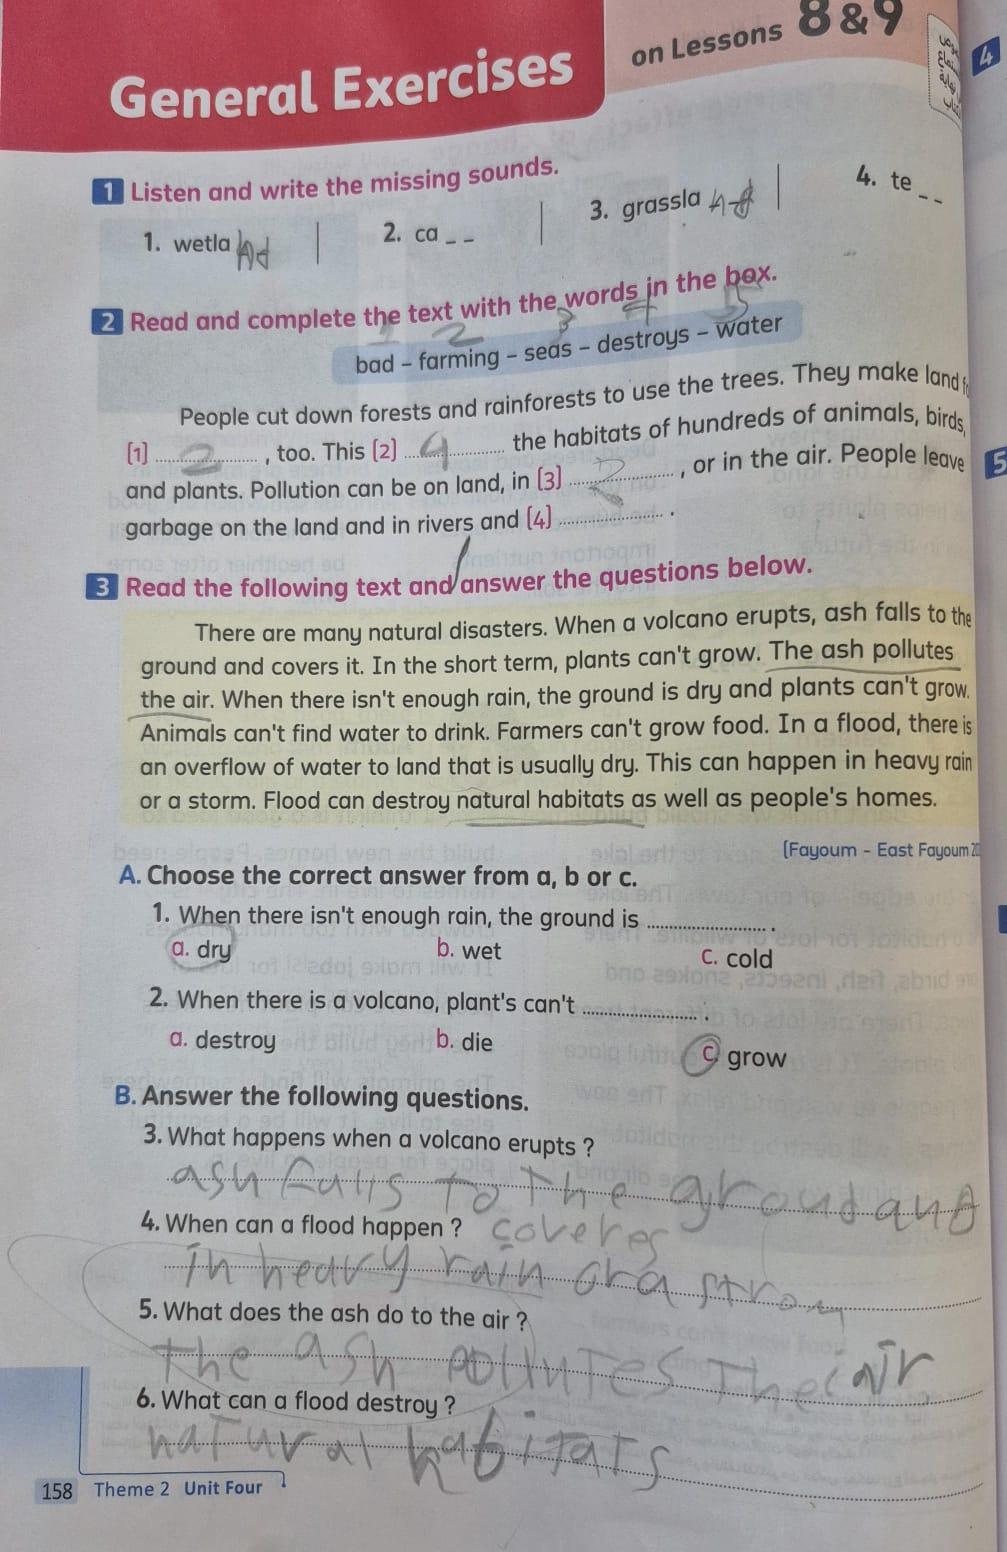 General Exercises
on Lessons 8 & 9
4
1 Listen and write the missing sounds.
1. wetla nd
2. ca _ _
3. grassla nd
4. te _ _
2 Read and complete the text with the words in the box.
1 2 3 4 5
bad – farming – seas – destroys – water
People cut down forests and rainforests to use the trees. They make land
(1) 2 , too. This (2) 4 the habitats of hundreds of animals, birds,
and plants. Pollution can be on land, in (3) , or in the air. People leave
garbage on the land and in rivers and (4) .
5
3 Read the following text and answer the questions below.
There are many natural disasters. When a volcano erupts, ash falls to the
ground and covers it. In the short term, plants can't grow. The ash pollutes
the air. When there isn't enough rain, the ground is dry and plants can't grow.
Animals can't find water to drink. Farmers can't grow food. In a flood, there is
an overflow of water to land that is usually dry. This can happen in heavy rain
or a storm. Flood can destroy natural habitats as well as people's homes.
(Fayoum – East Fayoum
A. Choose the correct answer from a, b or c.
1. When there isn't enough rain, the ground is .
a. dry b. wet c. cold
2. When there is a volcano, plant's can't .
a. destroy b. die c. grow
B. Answer the following questions.
3. What happens when a volcano erupts ?
ash falls to the ground and
covers
4. When can a flood happen ?
in heavy rain or a strom
5. What does the ash do to the air ?
the ash pollutes the air
6. What can a flood destroy ?
natural habitats
158 Theme 2 Unit Four